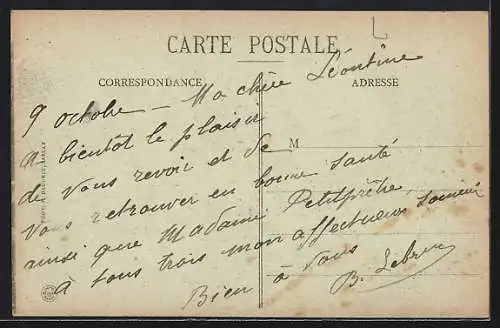 CARTE POSTALE
CORRESPONDANCE
ADRESSE
M
9 octobre - Ma chère Léontine
A bientôt le plaisir
de vous revoir et de
vous retrouver en bonne santé
ainsi que Madame Petitprêtre,
à tous trois mon affectueux souvenir
Bien à vous
B. Lebrun